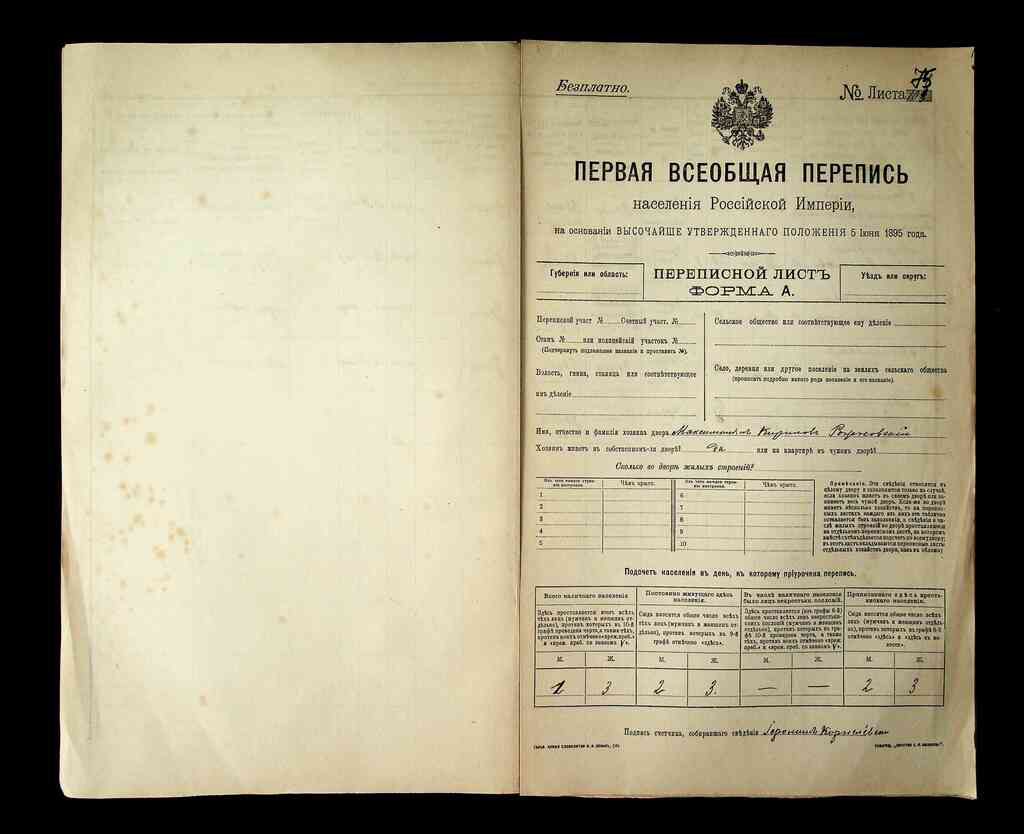 Безплатно.
№ Листа 75
ПЕРВАЯ ВСЕОБЩАЯ ПЕРЕПИСЬ
населенія Россійской Имперіи,
на основаніи ВЫСОЧАЙШЕ УТВЕРЖДЕННАГО ПОЛОЖЕНІЯ 5 Іюня 1895 года.
Губернія или область:
ПЕРЕПИСНОЙ ЛИСТЪ
ФОРМА А.
Уѣздъ или округъ:
Переписной участ. № Счетный участ. №
Станъ № или полицейскій участокъ №
(Подчеркнуть подлежащее названіе и проставить №).
Волость, гмина, станица или соотвѣтствующее
имъ дѣленіе
Сельское общество или соотвѣтствующее ему дѣленіе
Село, деревня или другое поселеніе на земляхъ сельскаго общества
(прописать подробно какого рода поселеніе и его названіе).
Имя, отчество и фамилія хозяина двора Максимилiанъ Кириловъ
Хозяинъ живетъ въ собственномъ-ли дворѣ? Да или на квартирѣ въ чужомъ дворѣ?
Сколько во дворѣ жилыхъ строеній?
Изъ чего каждое строе-
ніе построено.
Чѣмъ крыто.
Изъ чего каждое строе-
ніе построено.
Чѣмъ крыто.
1
6
2
7
3
8
4
9
5
10
Примѣчаніе. Эти свѣдѣнія относятся къ
цѣлому двору и заполняются только въ случаѣ,
если хозяинъ живетъ въ своемъ дворѣ или за-
нимаетъ весь чужой дворъ. Если-же во дворѣ
живетъ нѣсколько хозяйствъ, то на перепис-
ныхъ листахъ каждаго изъ нихъ эта табличка
оставляется безъ заполненія, а свѣдѣнія о чи-
слѣ жилыхъ строеній во дворѣ проставляются
на отдѣльномъ переписномъ листѣ, на которомъ
вмѣстѣ съ тѣмъ дѣлается подсчетъ по всему двору;
въ этотъ листъ вкладываются переписные листы
отдѣльныхъ хозяйствъ двора, какъ въ обложку
Подсчетъ населенія въ день, къ которому пріурочена перепись.
Всего наличнаго населенія
Постоянно живущаго здѣсь
населенія.
Въ числѣ наличнаго населенія
было лицъ некрестьян. сословій.
Приписаннаго здѣсь кресть-
янскаго населенія.
Здѣсь проставляется итогъ всѣхъ
тѣхъ лицъ (мужчинъ и женщинъ от-
дѣльно), противъ которыхъ въ 10-й
графѣ проведена черта, а также тѣхъ,
противъ коихъ отмѣчено «врем. преб.»
и «врем. преб. со знакомъ V».
Сюда вносится общее число всѣхъ
тѣхъ лицъ (мужчинъ и женщинъ отдѣ-
льно), противъ которыхъ въ 9-й
графѣ отмѣчено «здѣсь».
Здѣсь проставляется (изъ графы 6-й)
общее число всѣхъ лицъ некресть-
янскихъ сословій (мужчинъ и женщинъ
отдѣльно), противъ которыхъ въ
графѣ 10-й проведена черта, а также
тѣхъ, противъ коихъ отмѣчено «врем.
преб.» и «врем. преб. со знакомъ V».
Сюда вносится общее число всѣхъ
лицъ (мужчинъ и женщинъ отдѣль-
но), противъ которыхъ въ графѣ 8-й
отмѣчено «здѣсь» и «здѣсь въ во-
лости».
М. Ж. М. Ж. М. Ж. М. Ж.
1 3 2 3. — — 2 3
Подпись счетчика, собиравшаго свѣдѣнія